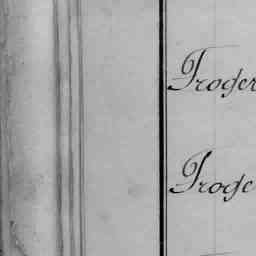 Troger
Troge